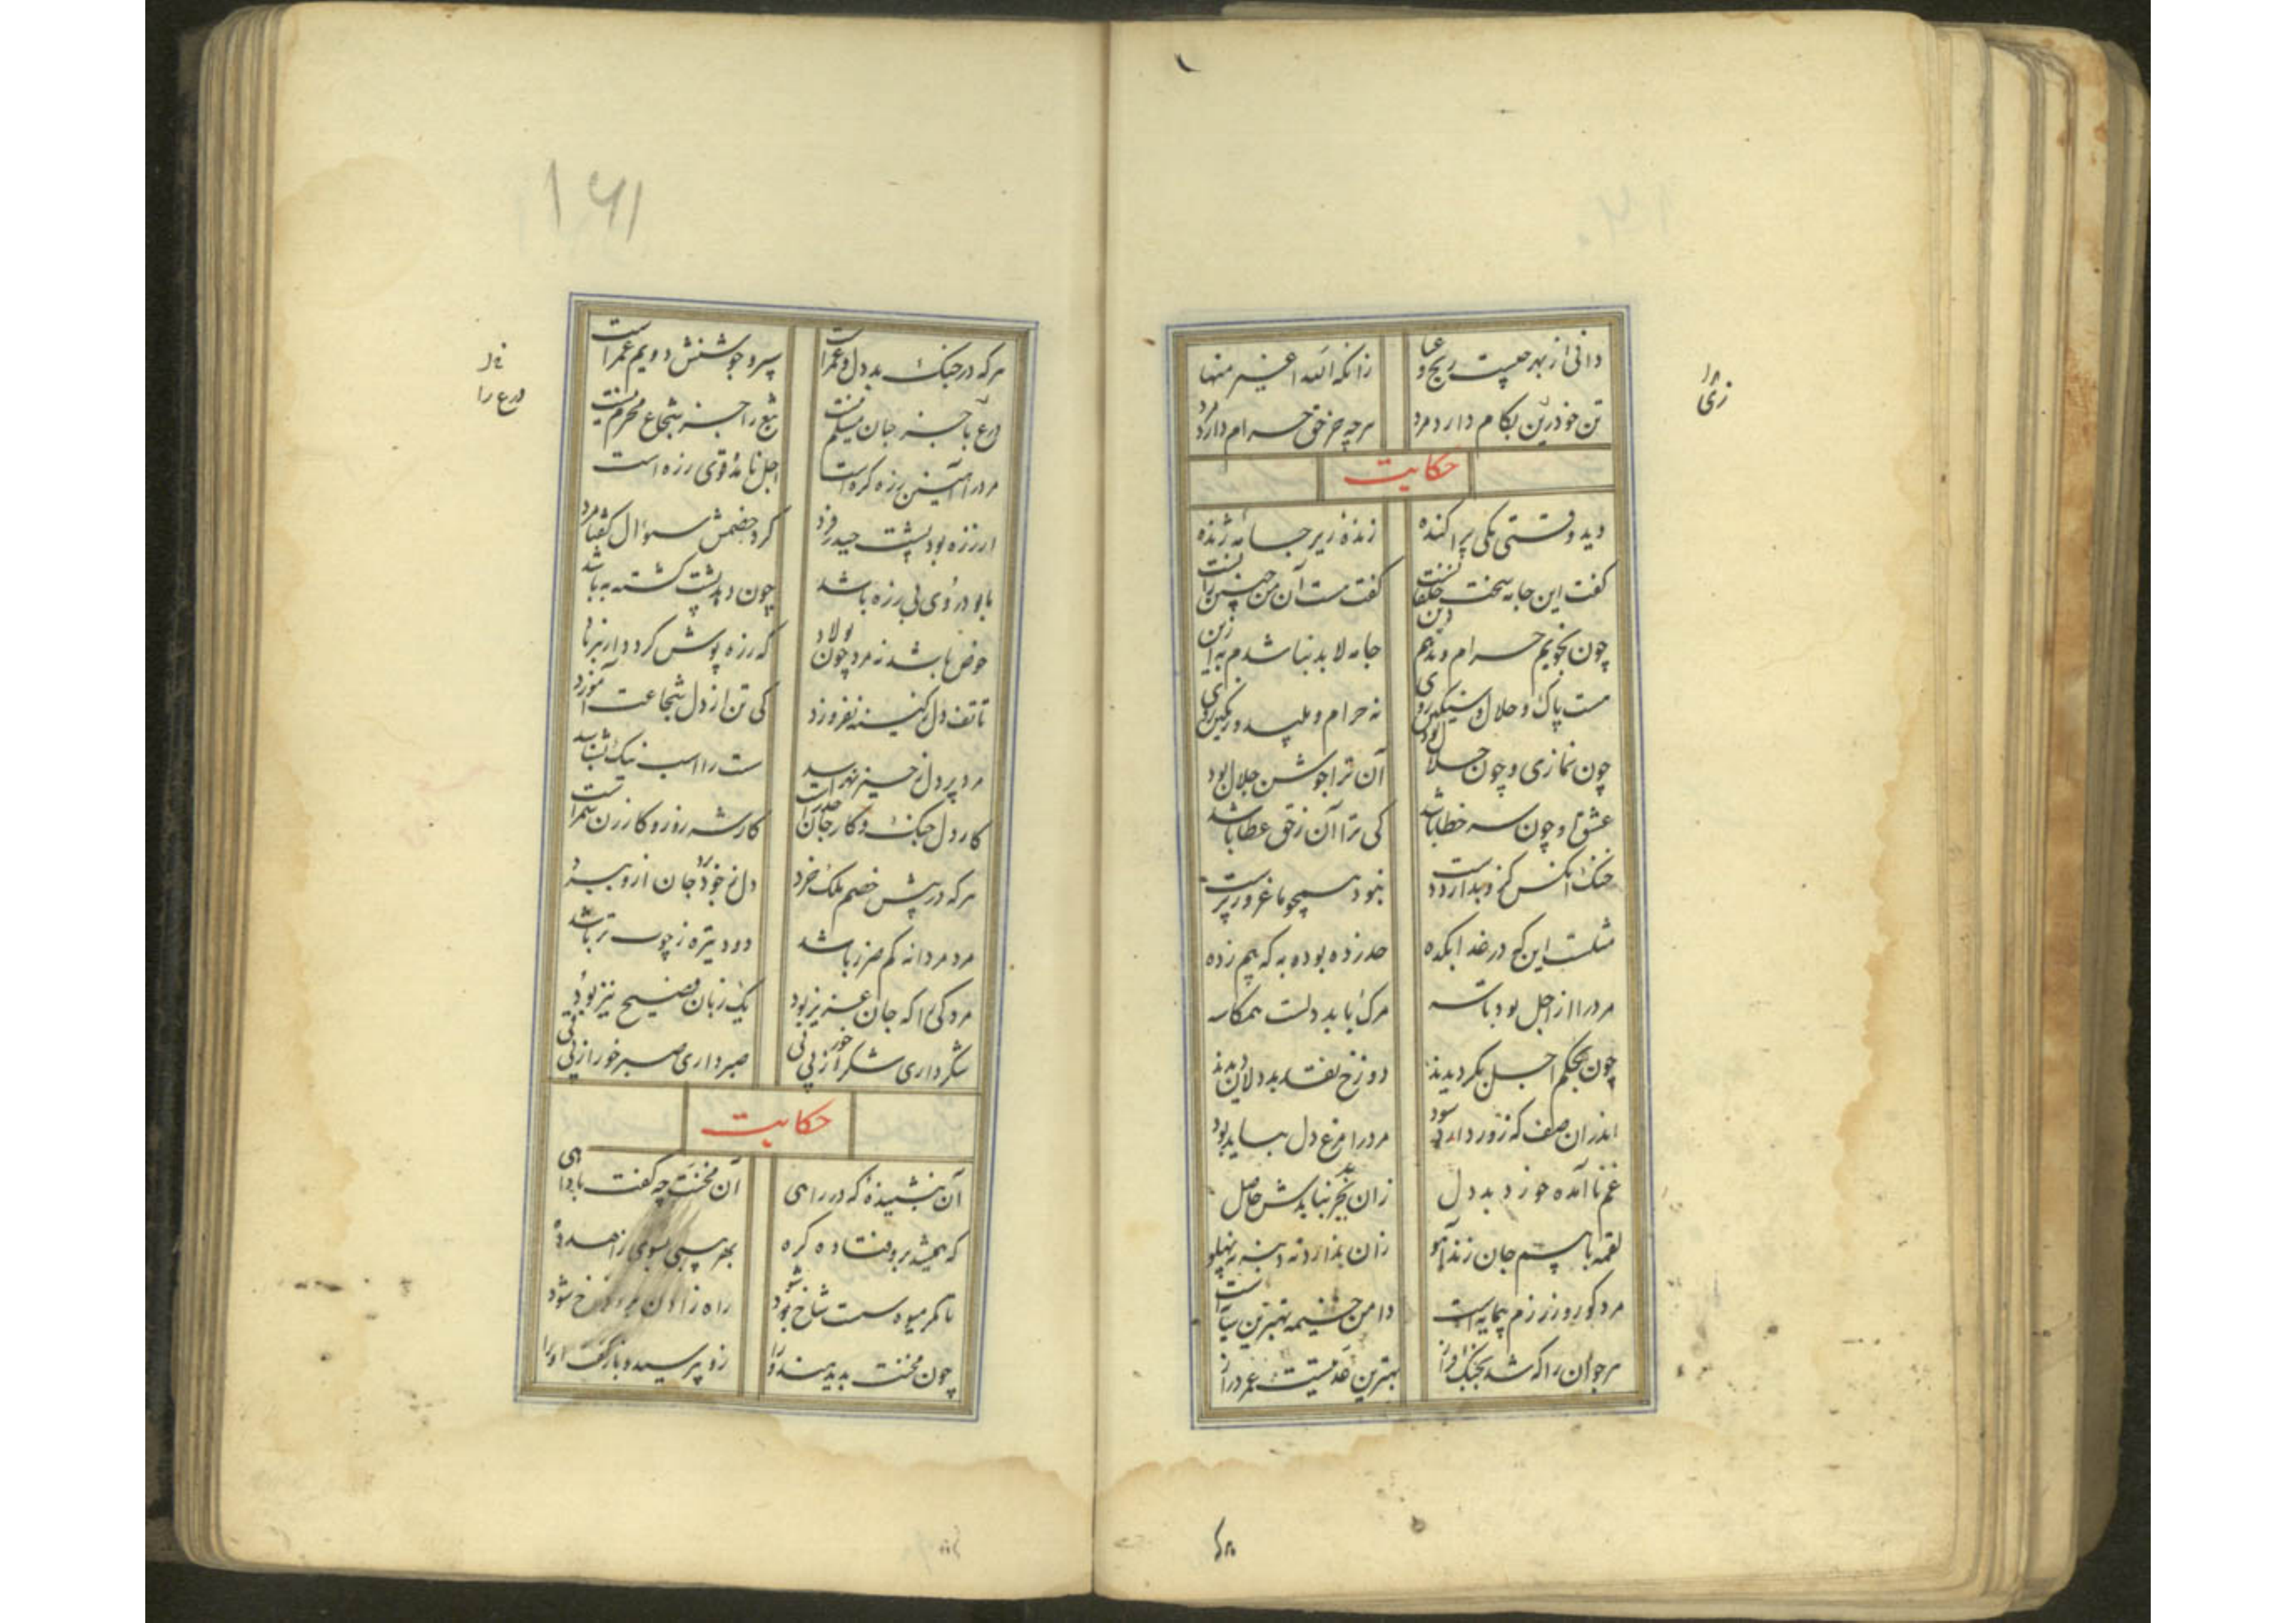 دانی از بهر چیست رنج و عنا زانکه الله اغنیر منها
تن خود زین بکام دارد مرد هرچه جز حق حرام دارد مرد
حکایت
دید وقتی یکی پراکنده زنده زیر جامه ژنده
گفت این جامه سخت خلقانست گفت هست آن من چنین زانست
چون نجویم حرام و ندهم دین جامه لابد نباشدم به ازین
هست پاک و حلال و ننگین روی نه حرام و پلید و رنگین روی
چون نمازی و چون حلال بود آن ترا جوشن جلال بود
عشق و چون سه خطا باشد کی ترا آن ز حق عطا باشد
خنک آنکس کزو بدارد دست نبود همچو ما غرور پرست
مثلست این که در غدابکده حد زده بوده به که بیم زده
مرد را از اجل بود تاسه مرگ باید دلت همکاسه
چون بحکم اجل نگردیدند دوزخ نقد بددلان دیدند
اندران صف که زور دارد سود مرد را مرغ دل نباید بود
غم ناآمده خورد بددل زان بجز نباشدش حاصل
لقمه با بیم جان زند آهو زان ندارد نه دنبه نه پهلو
مرد کو روز رزم پیمایه است دامن خیمه بهترین دایه است
هر جوان را که شد بجنگ فراز بهترین عدتیست عمر دراز
۱۶۱
هرکه در جنگ بددل و غمراست سپر و جوشنش دویم عمراست
درع با جز جان مسلم نیست تیغ را جز شجاع محرم نیست
درع را
مرد را آهنین زره کره است اجل نامده قوی زره است
از زره بود پشت حیدر فرد کرد خصمش سؤال گفتا مرد
تا بود روی بی زره باشد چون دهد پشت کشته به باشد
حوض باشد نه مرد چون پولاد که زره پوش گردد از بر باد
تا تف دل ز کینه نفروزد کی تن از دل شجاعت آموزد
مرد پردل ز خیز نهراسد مست را اسب نیک بشناسد
کار دل جنگ و کار جان حذر است کار شه روز و کار زن سمر است
هرکه در پیش خصم ملک خرد دل ز خود برد جان ازو ببرد
مرد مردانه کم ضرر باشد دود تیره ز چوب تر باشد
مرد کی را که جان عزیز بود یک زبان فصیح نیز بود
شکر داری شکر خور از پی نی صبر داری صبر خور از پی قی
حکایت
آن بنشنیده که در راهی آن مخنث چه گفت با داهی
که همیشه برو فتاده گره بهر پیسی بسوی زاهد ده
تا مگر میوه سست شاخ شود راه زادن برو فراخ شود
چون مخنث بدید هندو را زو بپرسید و بازگفت او را